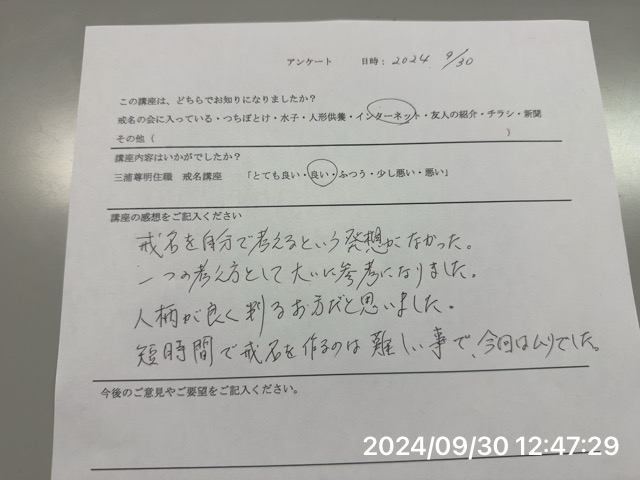 アンケート 日時：2024 9/30
この講座は、どちらでお知りになりましたか？
戒名の会に入っている・つちぼとけ・水子・人形供養・インターネット・友人の紹介・チラシ・新聞
その他（ ）
講座内容はいかがでしたか？
三浦尊明住職 戒名講座 「とても良い・良い・ふつう・少し悪い・悪い」
講座の感想をご記入ください
戒名を自分で考えるという発想がなかった。
一つの考え方として大いに参考になりました。
人柄が良く判るお方だと思いました。
短時間で戒名を作るのは難しい事で、今回はムリでした。
今後のご意見やご要望をご記入ください。
2024/09/30 12:47:29